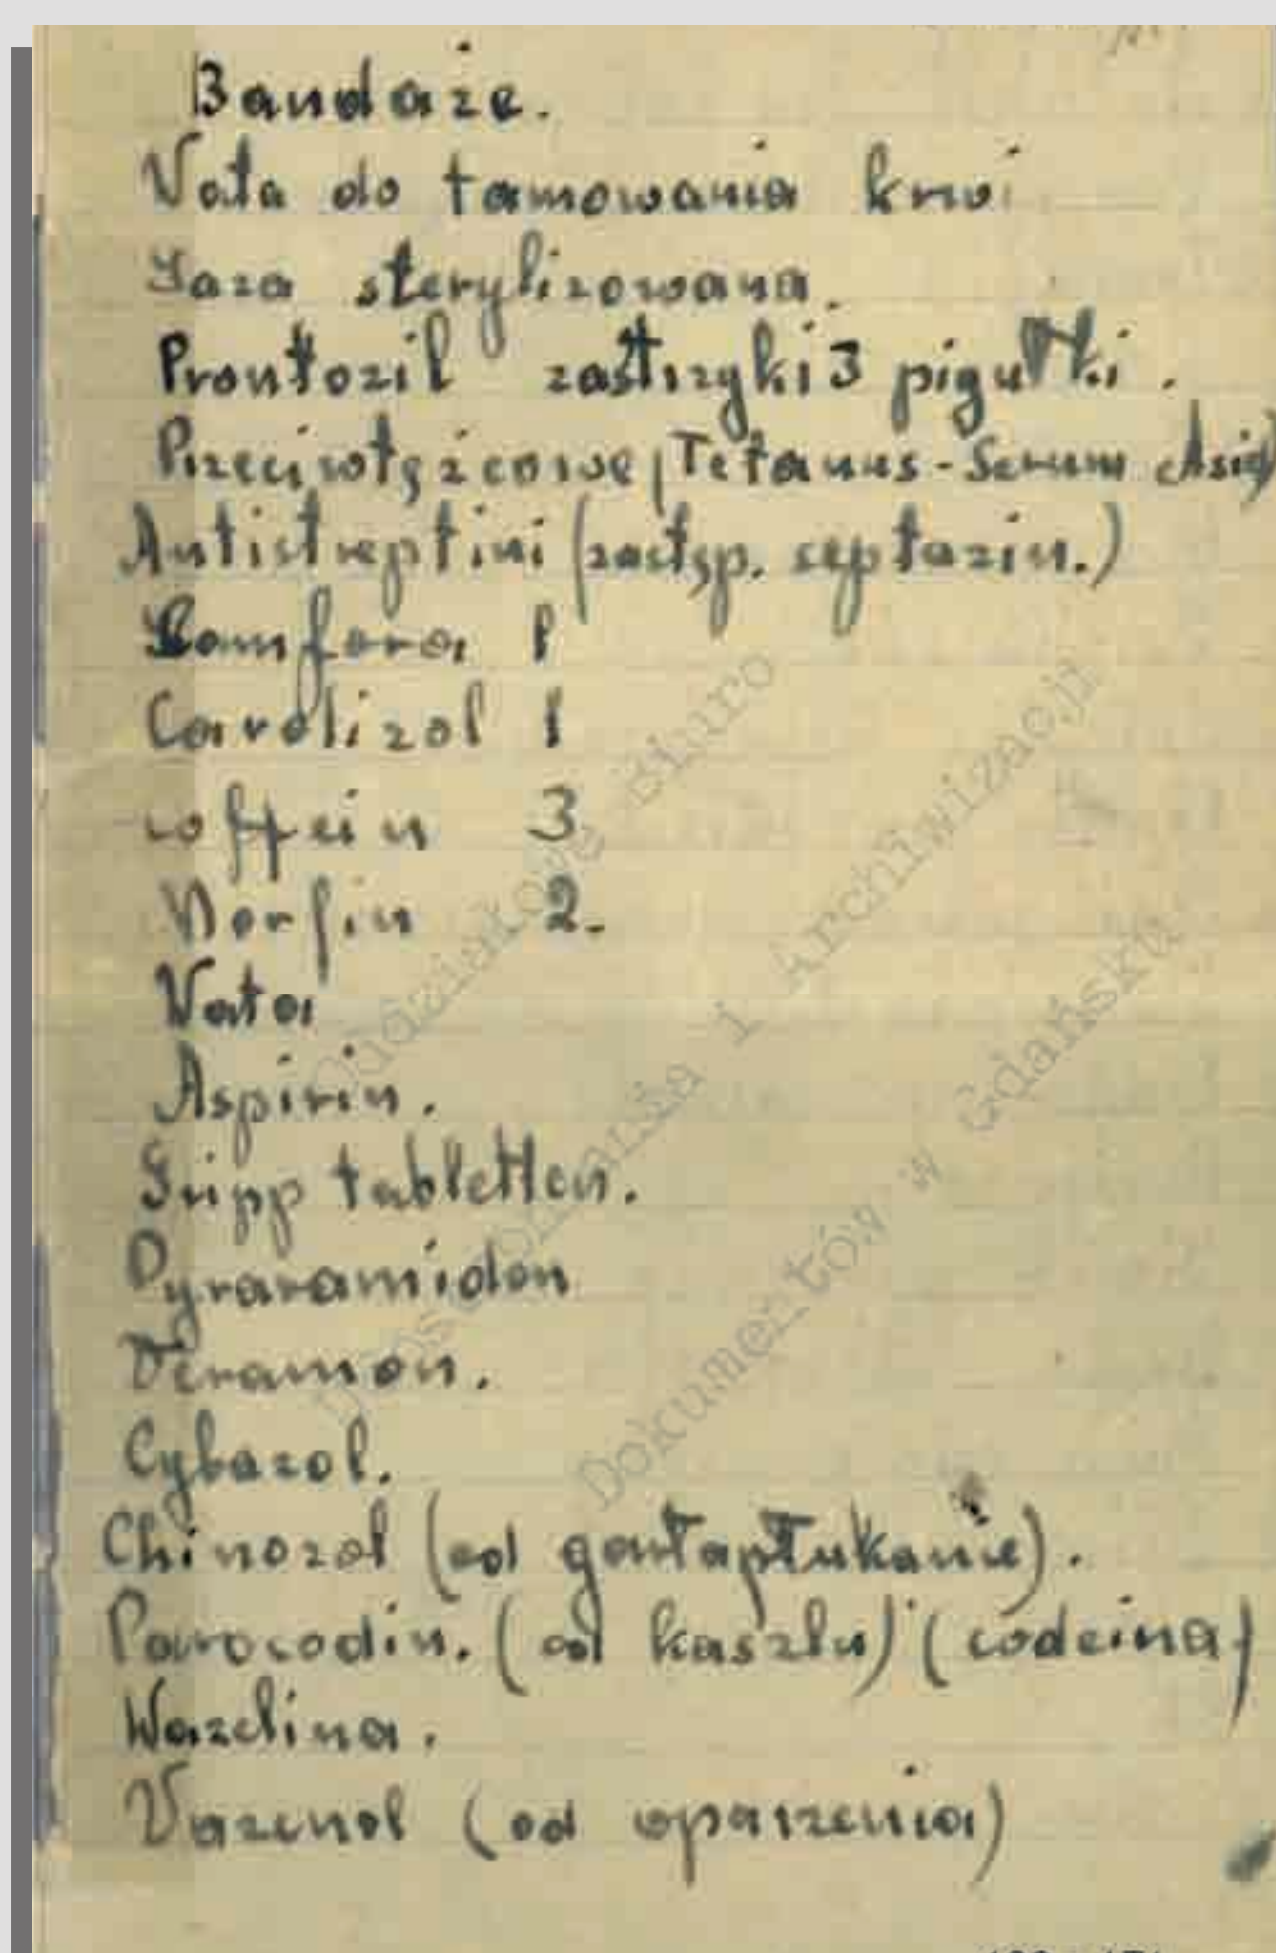 Bandaże.
Vata do tamowania krwi
Gaza sterylizowana.
Prontozil zastrzyki 3 pigułki.
Przeciwtężcowe (Tetanus-Serum Asid)
Antistreptini (zastęp. septazin.)
Kamfora 1
Cardizol 1
coffein 3
Morfin 2.
Vata
Aspirin.
Gripp tabletten.
Pyraramidon
Veramon.
Cybazol.
Chinozol (od gardła płukanie).
Paracodin. (od kaszlu) (codeina)
Wazelina.
Vazenol (od oparzenia)
Oddziałowe Biuro
Udostępniania i Archiwizacji
Dokumentów w Gdańsku